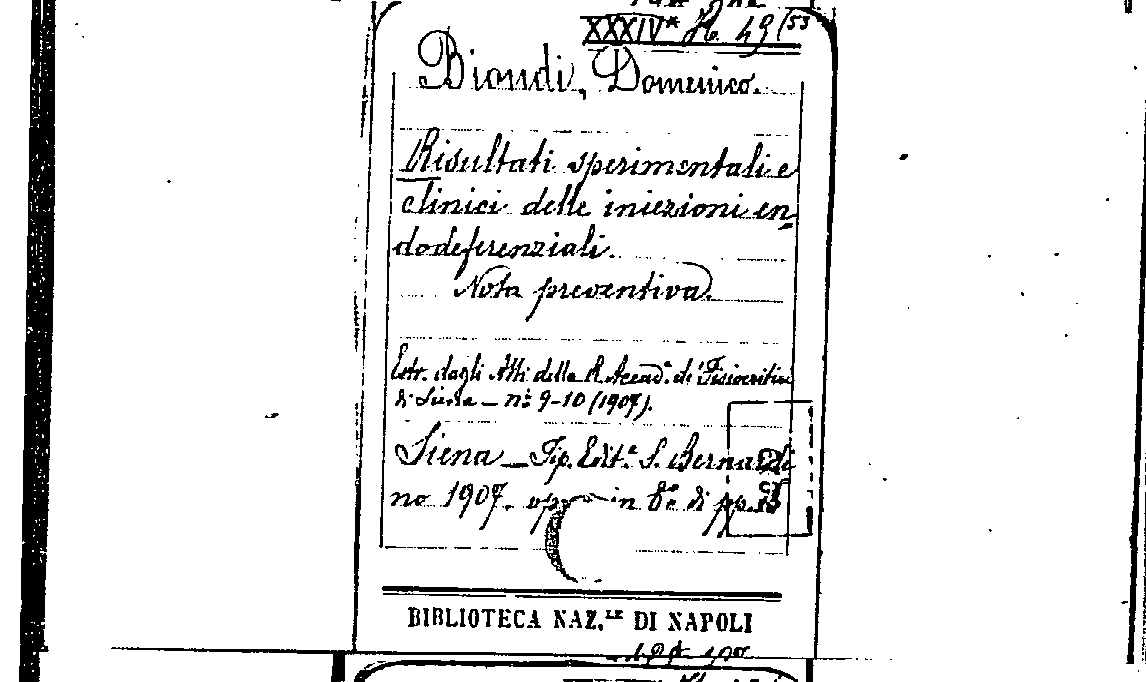 XXXIVª H. 49 (53
Biondi, Domenico.
Risultati sperimentali e
clinici delle iniezioni en-
dodeferenziali.
Nota preventiva.
Estr. dagli Atti della R. Accad.ª de' Fisiocritici
di Siena — nⁱ 9-10 (1907).
Siena — Tip. Edit.ª S. Bernardi
no 1907. op. in 8º di pp.
BIBLIOTECA NAZ.LE DI NAPOLI